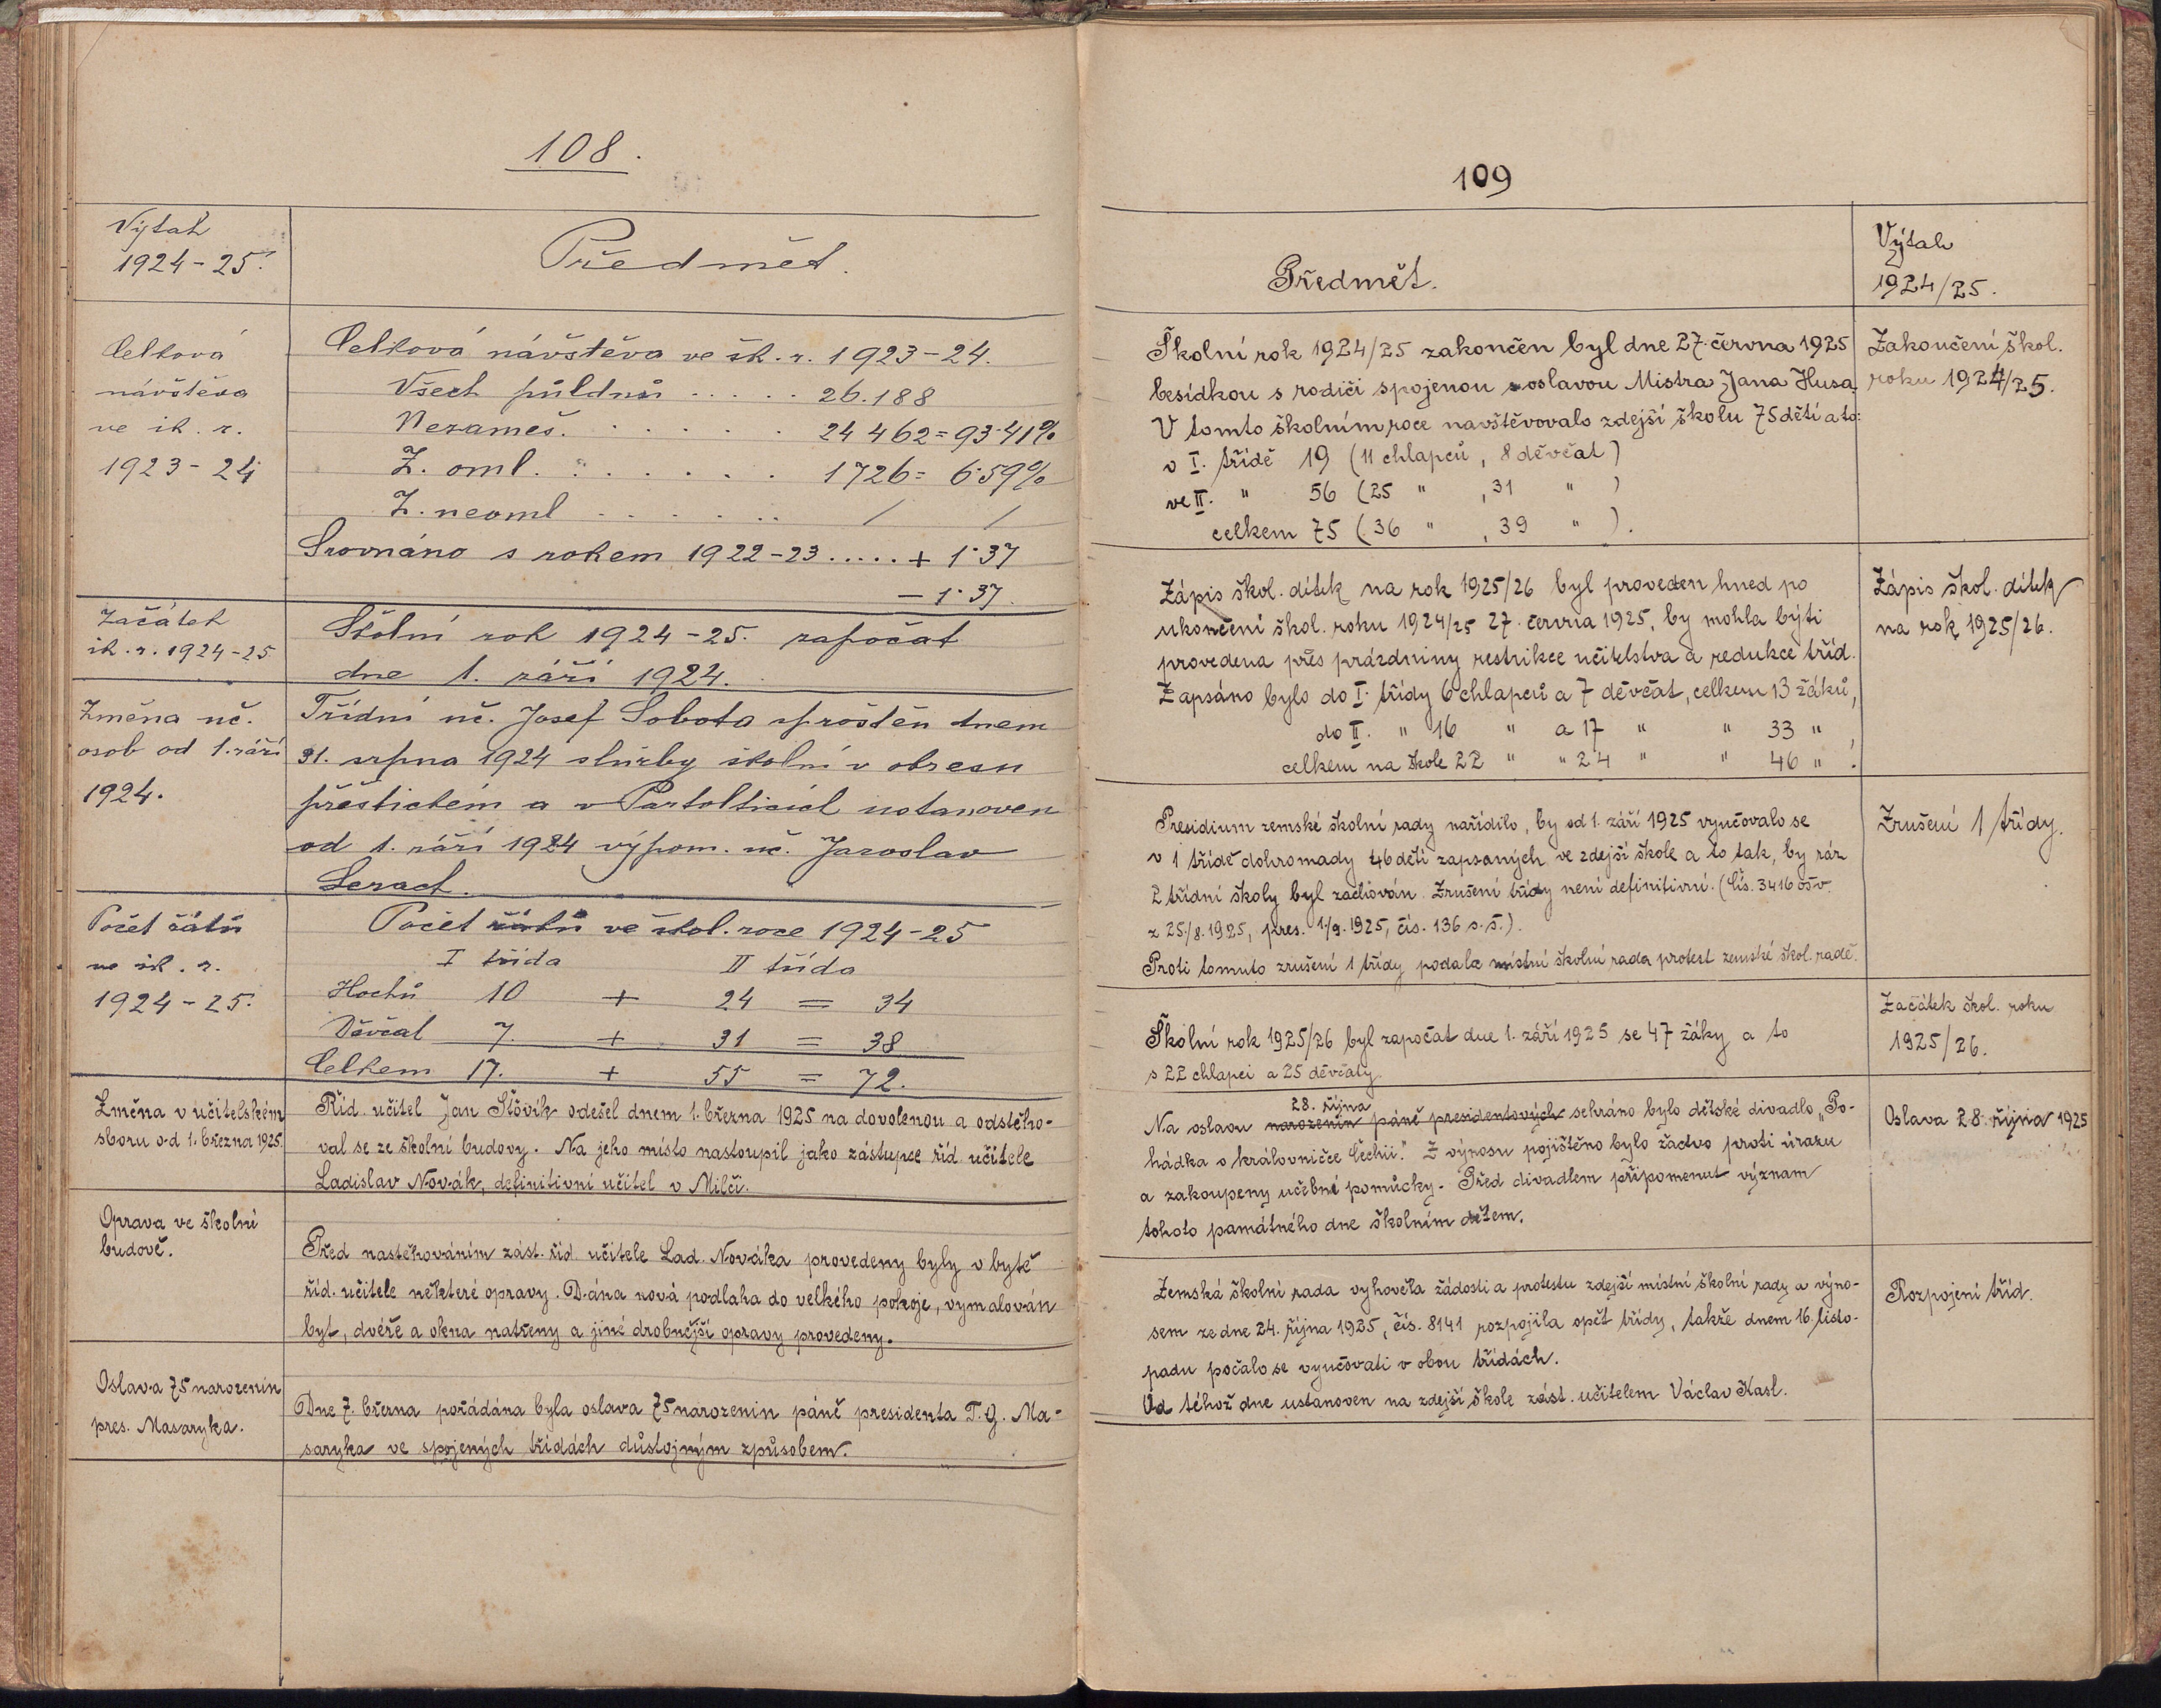 108.
Výtah
1924-25.
Předmět.
Celková
návštěva
ve šk. r.
1923-24
Celková návštěva ve šk. r. 1923-24.
Všech půldnů ..... 26.188
Nezameš. ..... 24 462 = 93·41%
Z. oml. ..... 1726 = 6·59%
Z. neoml ..... / /
Srovnáno s rokem 1922-23 ..... + 1·37
— 1·37.
Začátek
šk. r. 1924-25
Školní rok 1924-25. započat
dne 1. září 1924.
Změna uč.
osob od 1. září
1924.
Třídní uč. Josef Sobota sproštěn dnem
31. srpna 1924 služby školní v okresu
přeštickém a v Partolticích ustanoven
od 1. září 1924 výpom. uč. Jaroslav
Počet žáků
ve šk. r.
1924-25.
Počet žáků ve škol. roce 1924-25
I třída II třída
Hochů 10 + 24 = 34
Děvčat 7. + 31 = 38
Celkem 17. + 55 = 72.
Změna v učitelském
sboru od 1. března 1925.
Říd. učitel Jan Šťovík odešel dnem 1. března 1925 na dovolenou a odstěho-
val se ze školní budovy. Na jeho místo nastoupil jako zástupce říd. učitele
Ladislav Novák, definitivní učitel v Milči.
Oprava ve školní
budově.
Před nastěhováním zást. říd. učitele Lad. Nováka provedeny byly v bytě
říd. učitele některé opravy. Dána nová podlaha do velkého pokoje, vymalován
byt, dvéře a okna natřeny a jiné drobnější opravy provedeny.
Oslava 75 narozenin
pres. Masaryka.
Dne 7. března pořádána byla oslava 75 narozenin páně presidenta T. G. Ma-
saryka ve spojených třídách důstojným způsobem.
109
Předmět.
Výtah
1924/25.
Školní rok 1924/25 zakončen byl dne 27. června 1925
besídkou s rodiči spojenou s oslavou Mistra Jana Husa.
V tomto školním roce navštěvovalo zdejší školu 75 dětí a to:
v I. třídě 19 (11 chlapců, 8 děvčat)
ve II. " 56 (25 " , 31 " )
celkem 75 (36 " , 39 " ).
Zakončení škol.
roku 1924/25.
Zápis škol. dítek na rok 1925/26 byl proveden hned po
ukončení škol. roku 1924/25 27. června 1925, by mohla býti
provedena přes prázdniny restrikce učitelstva a redukce tříd.
Zapsáno bylo do I. třídy 6 chlapců a 7 děvčat, celkem 13 žáků,
do II. " 16 " a 17 " " 33 "
celkem na škole 22 " " 24 " " 46 " .
Zápis škol. dítek
na rok 1925/26.
Presidium zemské školní rady nařídilo, by od 1. září 1925 vyučovalo se
v 1 třídě dohromady 46 dětí zapsaných ve zdejší škole a to tak, by ráz
2 třídní školy byl zachován. Zrušení třídy není definitivní. (Čís. 3416 ošv.
z 25./8. 1925, pres. 1/9. 1925, čís. 136 s. š.).
Proti tomuto zrušení 1 třídy podala místní školní rada protest zemské škol. radě.
Zrušení 1 třídy.
Školní rok 1925/26 byl započat dne 1. září 1925 se 47 žáky a to
s 22 chlapci a 25 děvčaty.
Začátek škol. roku
1925/26.
28. října
Na oslavu narozenin páně presidentových sehráno bylo dětské divadlo „Po-
hádka o královničce Čechii." Z výnosu pojištěno bylo žactvo proti úrazu
a zakoupeny učebné pomůcky. Před divadlem připomenut význam
tohoto památného dne školním dětem.
Oslava 28. října 1925
Zemská školní rada vyhověla žádosti a protestu zdejší místní školní rady a výno-
sem ze dne 24. října 1925, čís. 8141 rozpojila opět třídy, takže dnem 16. listo-
padu počalo se vyučovati v obou třídách.
Od téhož dne ustanoven na zdejší škole zást. učitelem Václav Kasl.
Rozpojení tříd.